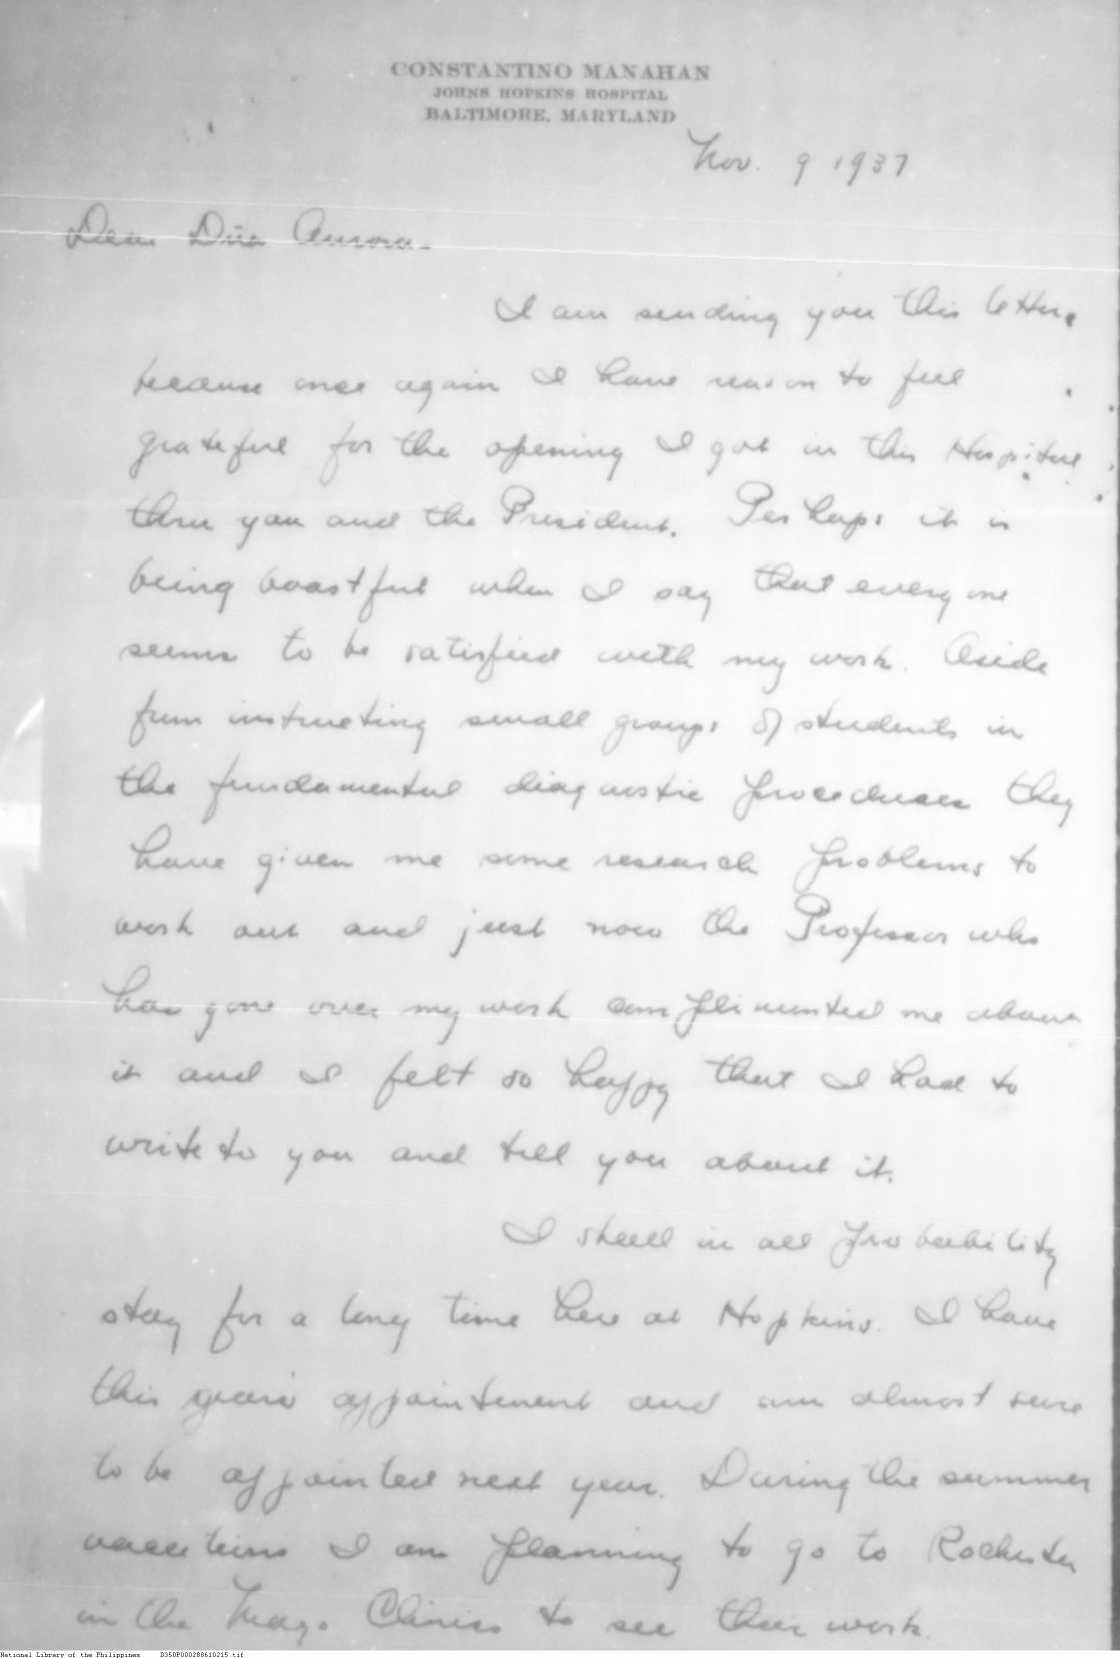 CONSTANTINO MANAHAN
JOHNS HOPKINS HOSPITAL
BALTIMORE, MARYLAND
Nov. 9 1937
Dear Dña Aurora -
I am sending you this letter,
because once again I have reason to feel
grateful for the opening I got in this Hospital
thru you and the President. Perhaps it is
being boastful when I say that every one
seems to be satisfied with my work. Aside
from instructing small groups of students in
the fundamental diagnostic procedures they
have given me some research problems to
work out and just now the Professor who
has gone over my work complimented me about
it and I felt so happy that I had to
write to you and tell you about it.
I shall in all probability
stay for a long time here at Hopkins. I have
this years appointment and am almost sure
to be appointed next year. During the summer
vacations I am planning to go to Rochester
in the Mayo Clinics to see their work.
National Library of the Philippines D350P000288610215.tif